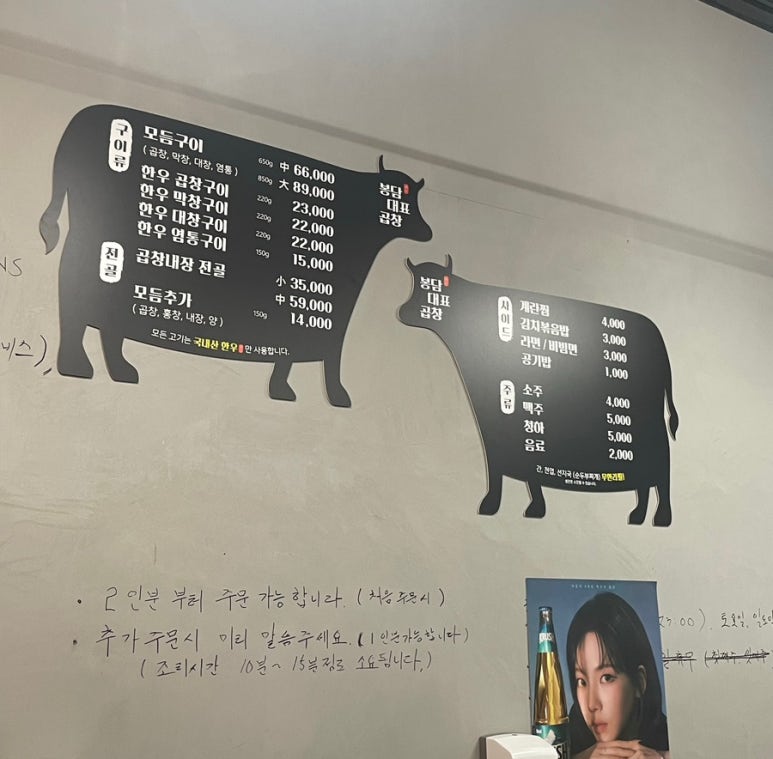 구이류
모듬구이
( 곱창, 막창, 대창, 염통 )
650g 中 66,000
850g 大 89,000
한우 곱창구이 220g 23,000
한우 막창구이 220g 22,000
한우 대창구이 220g 22,000
한우 염통구이 150g 15,000
전골
곱창내장 전골
小 35,000
中 59,000
모듬추가 150g 14,000
( 곱창, 홍창, 내장, 양 )
모든 고기는 국내산 한우만 사용합니다.
봉담
대표
곱창
봉담
대표
곱창
사이드
계란찜 4,000
김치볶음밥 3,000
라면 / 비빔면 3,000
공기밥 1,000
주류
소주 4,000
맥주 5,000
청하 5,000
음료 2,000
간, 천엽, 선지국 (순두부찌개) 무한리필!
NS
비스),
· 2인분 부터 주문 가능합니다. (처음 주문시)
· 추가 주문시 미리 말씀주세요. (1인분가능합니다)
( 조리시간 10분~15분정도 소요됩니다.)
:00). 토요일, 일요